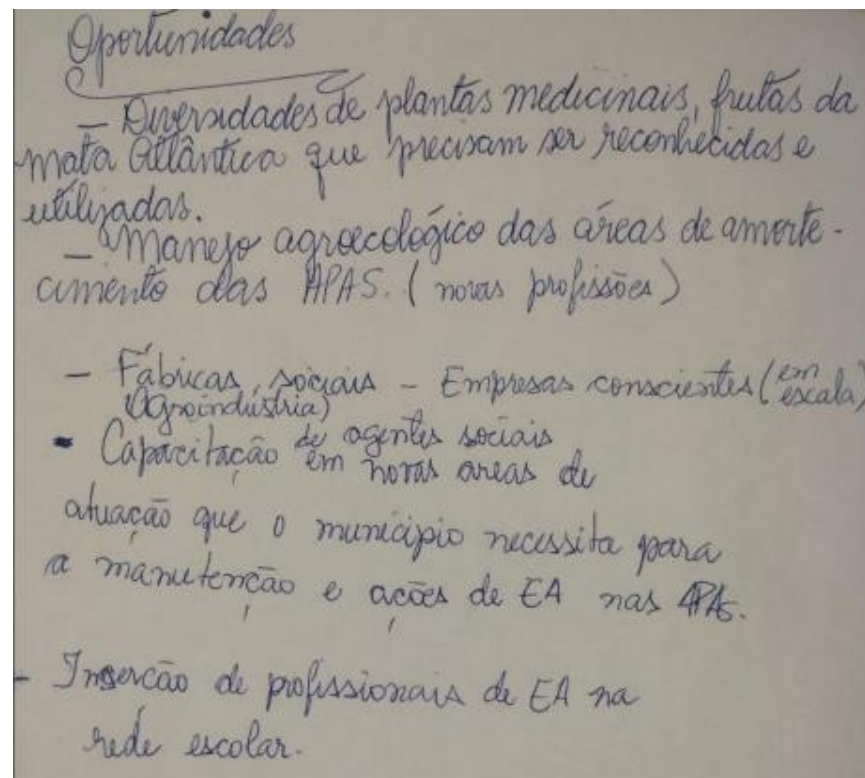 Oportunidades
- Diversidades de plantas medicinais, frutas da
mata Atlântica que precisam ser reconhecidas e
utilizadas.
- Manejo agroecológico das áreas de amorte-
cimento das APAS. (novas profissões)
- Fábricas sociais - Empresas conscientes (em escala)
(Agroindústria)
- Capacitação de agentes sociais
em novas areas de
atuação que o município necessita para
a manutenção e ações de EA nas APAS.
- Inserção de profissionais de EA na
rede escolar.